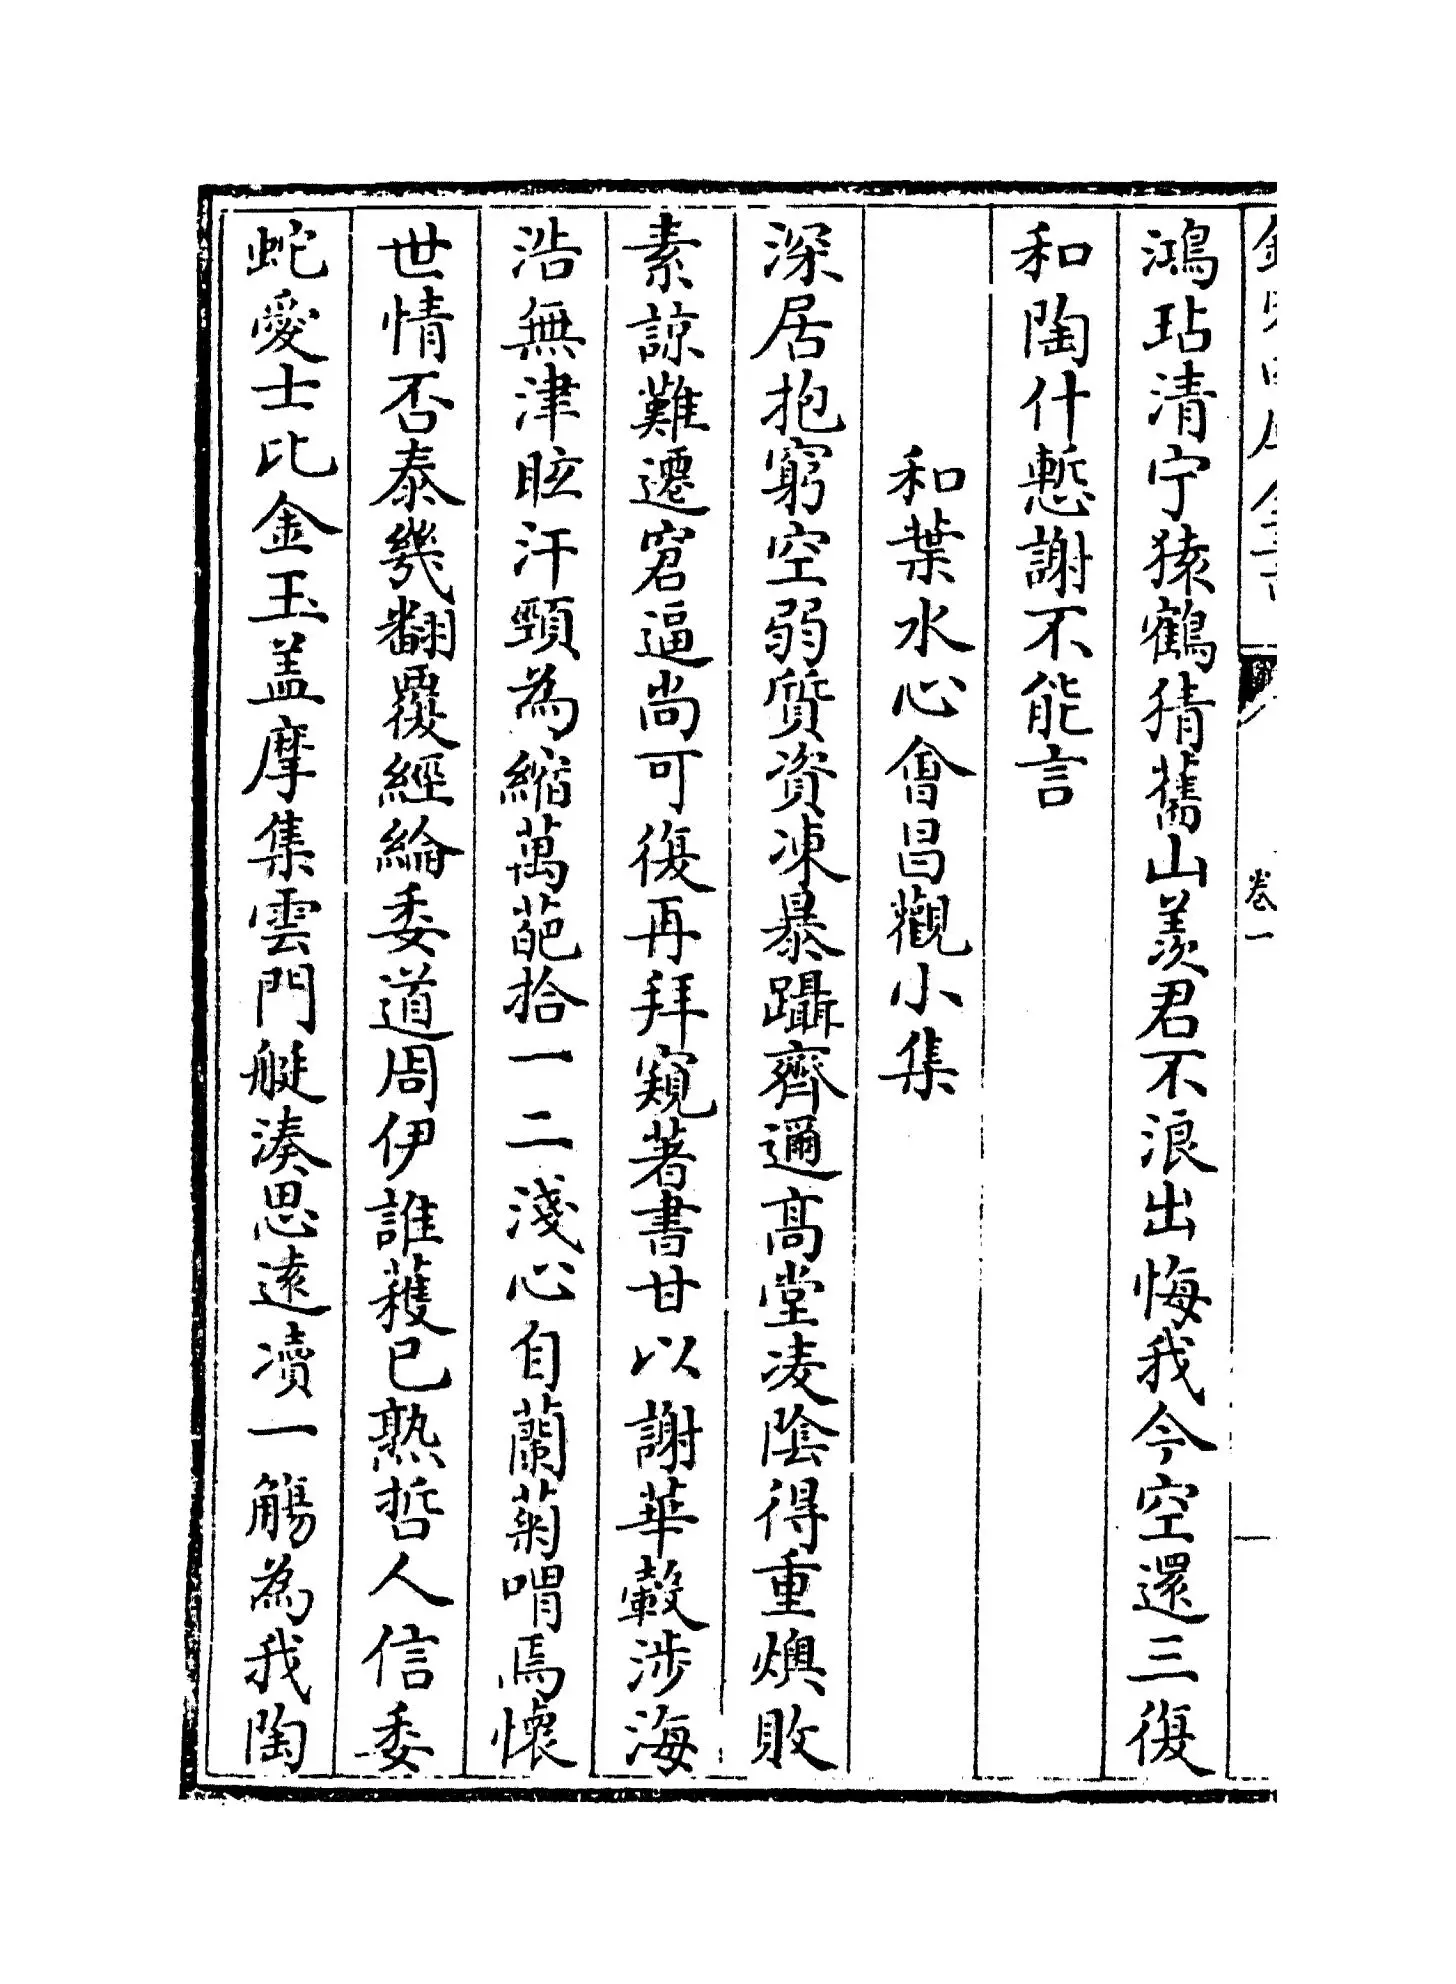 卷一
鴻玷清宁猿鶴猜舊山羨君不浪出悔我今空還三復
和陶什慙謝不能言
和葉水心會昌觀小集
深居抱窮空弱質資凍暴躡齊邇高堂凌陰得重燠敗
素諒難遷窘逼尚可復再拜窺著書甘以謝華轂涉海
浩無津眩汗頸為縮萬葩拾一二淺心自蘭菊喟焉懷
世情否泰幾翻覆經綸委道周伊誰蒦已熟哲人信委
蛇愛士比金玉盖摩集雲門艇湊思遠瀆一觴為我陶